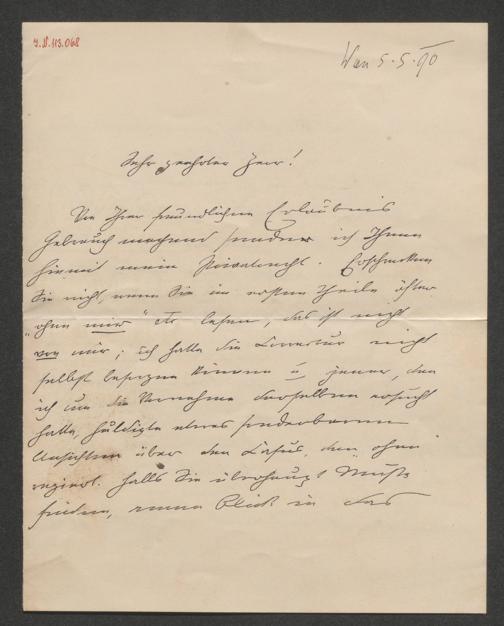 J.N. 113.068
Wien 5.5.90
Sehr geehrter Herr!
Von Ihrer freundlichen Erlaubnis
Gebrauch machend sende ich Ihnen
hiemit mein . Erschrecken
Sie nicht, wenn Sie im ersten Theile öfter
„ohne mir“ etc lesen, das ist nicht
von mir; ich hatte die Correctur nicht
selbst besorgen können u. jener, den
ich um die Vornahme derselben ersucht
hatte, huldigte etwas sonderbaren
Ansichten über den Casus, den „ohne“
regiert. Falls Sie überhaupt Muße
finden, einen Blick in das